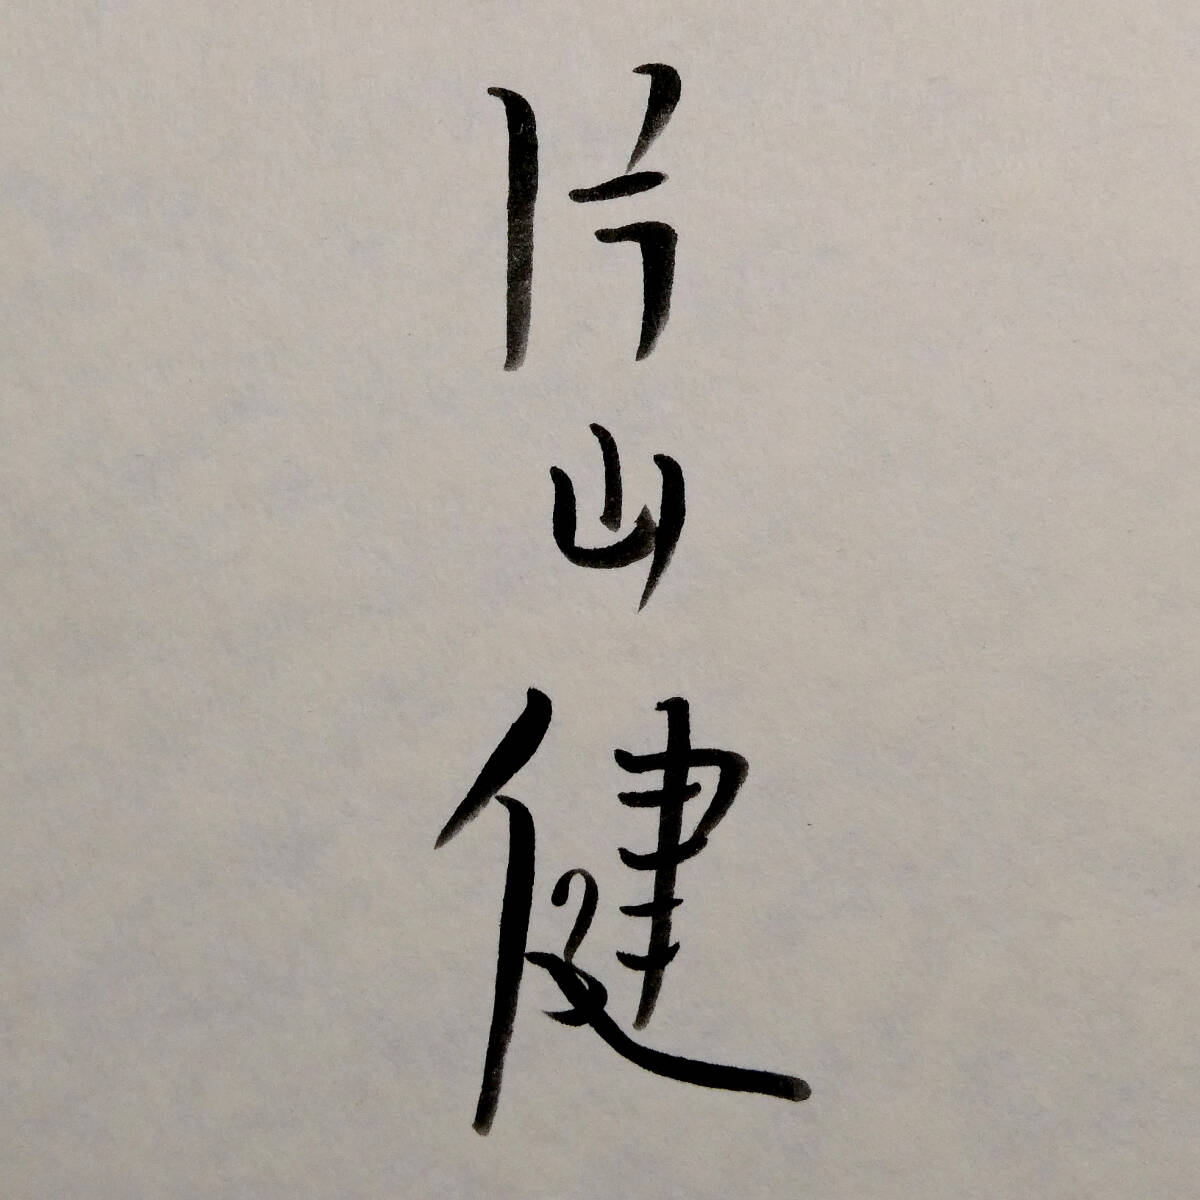 片山健